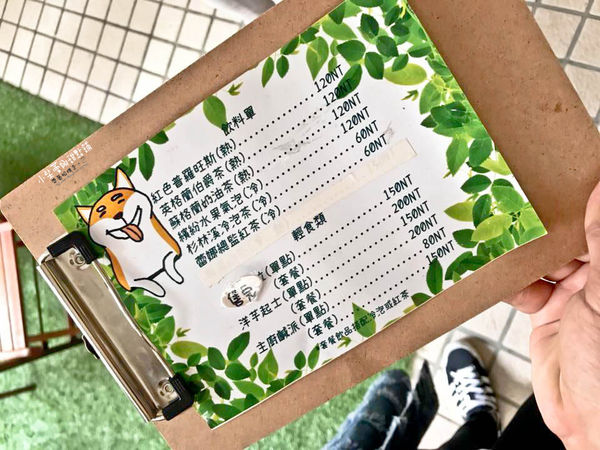 飲料單
紅色普羅旺斯(熱)..............120NT
英格蘭伯爵茶(熱)..............120NT
蘇格蘭奶油茶(熱)..............120NT
繽紛水果氣泡(冷)..............120NT
杉林溪冷泡茶(冷)..............60NT
蕾娜總監紅茶(冷)..............60NT
輕食類
售完
(單點)..............150NT
(套餐)..............200NT
洋芋起士(單點)..............150NT
(套餐)..............200NT
主廚鹹派(單點)..............80NT
(套餐)..............150NT
套餐飲品搭配冷泡或紅茶